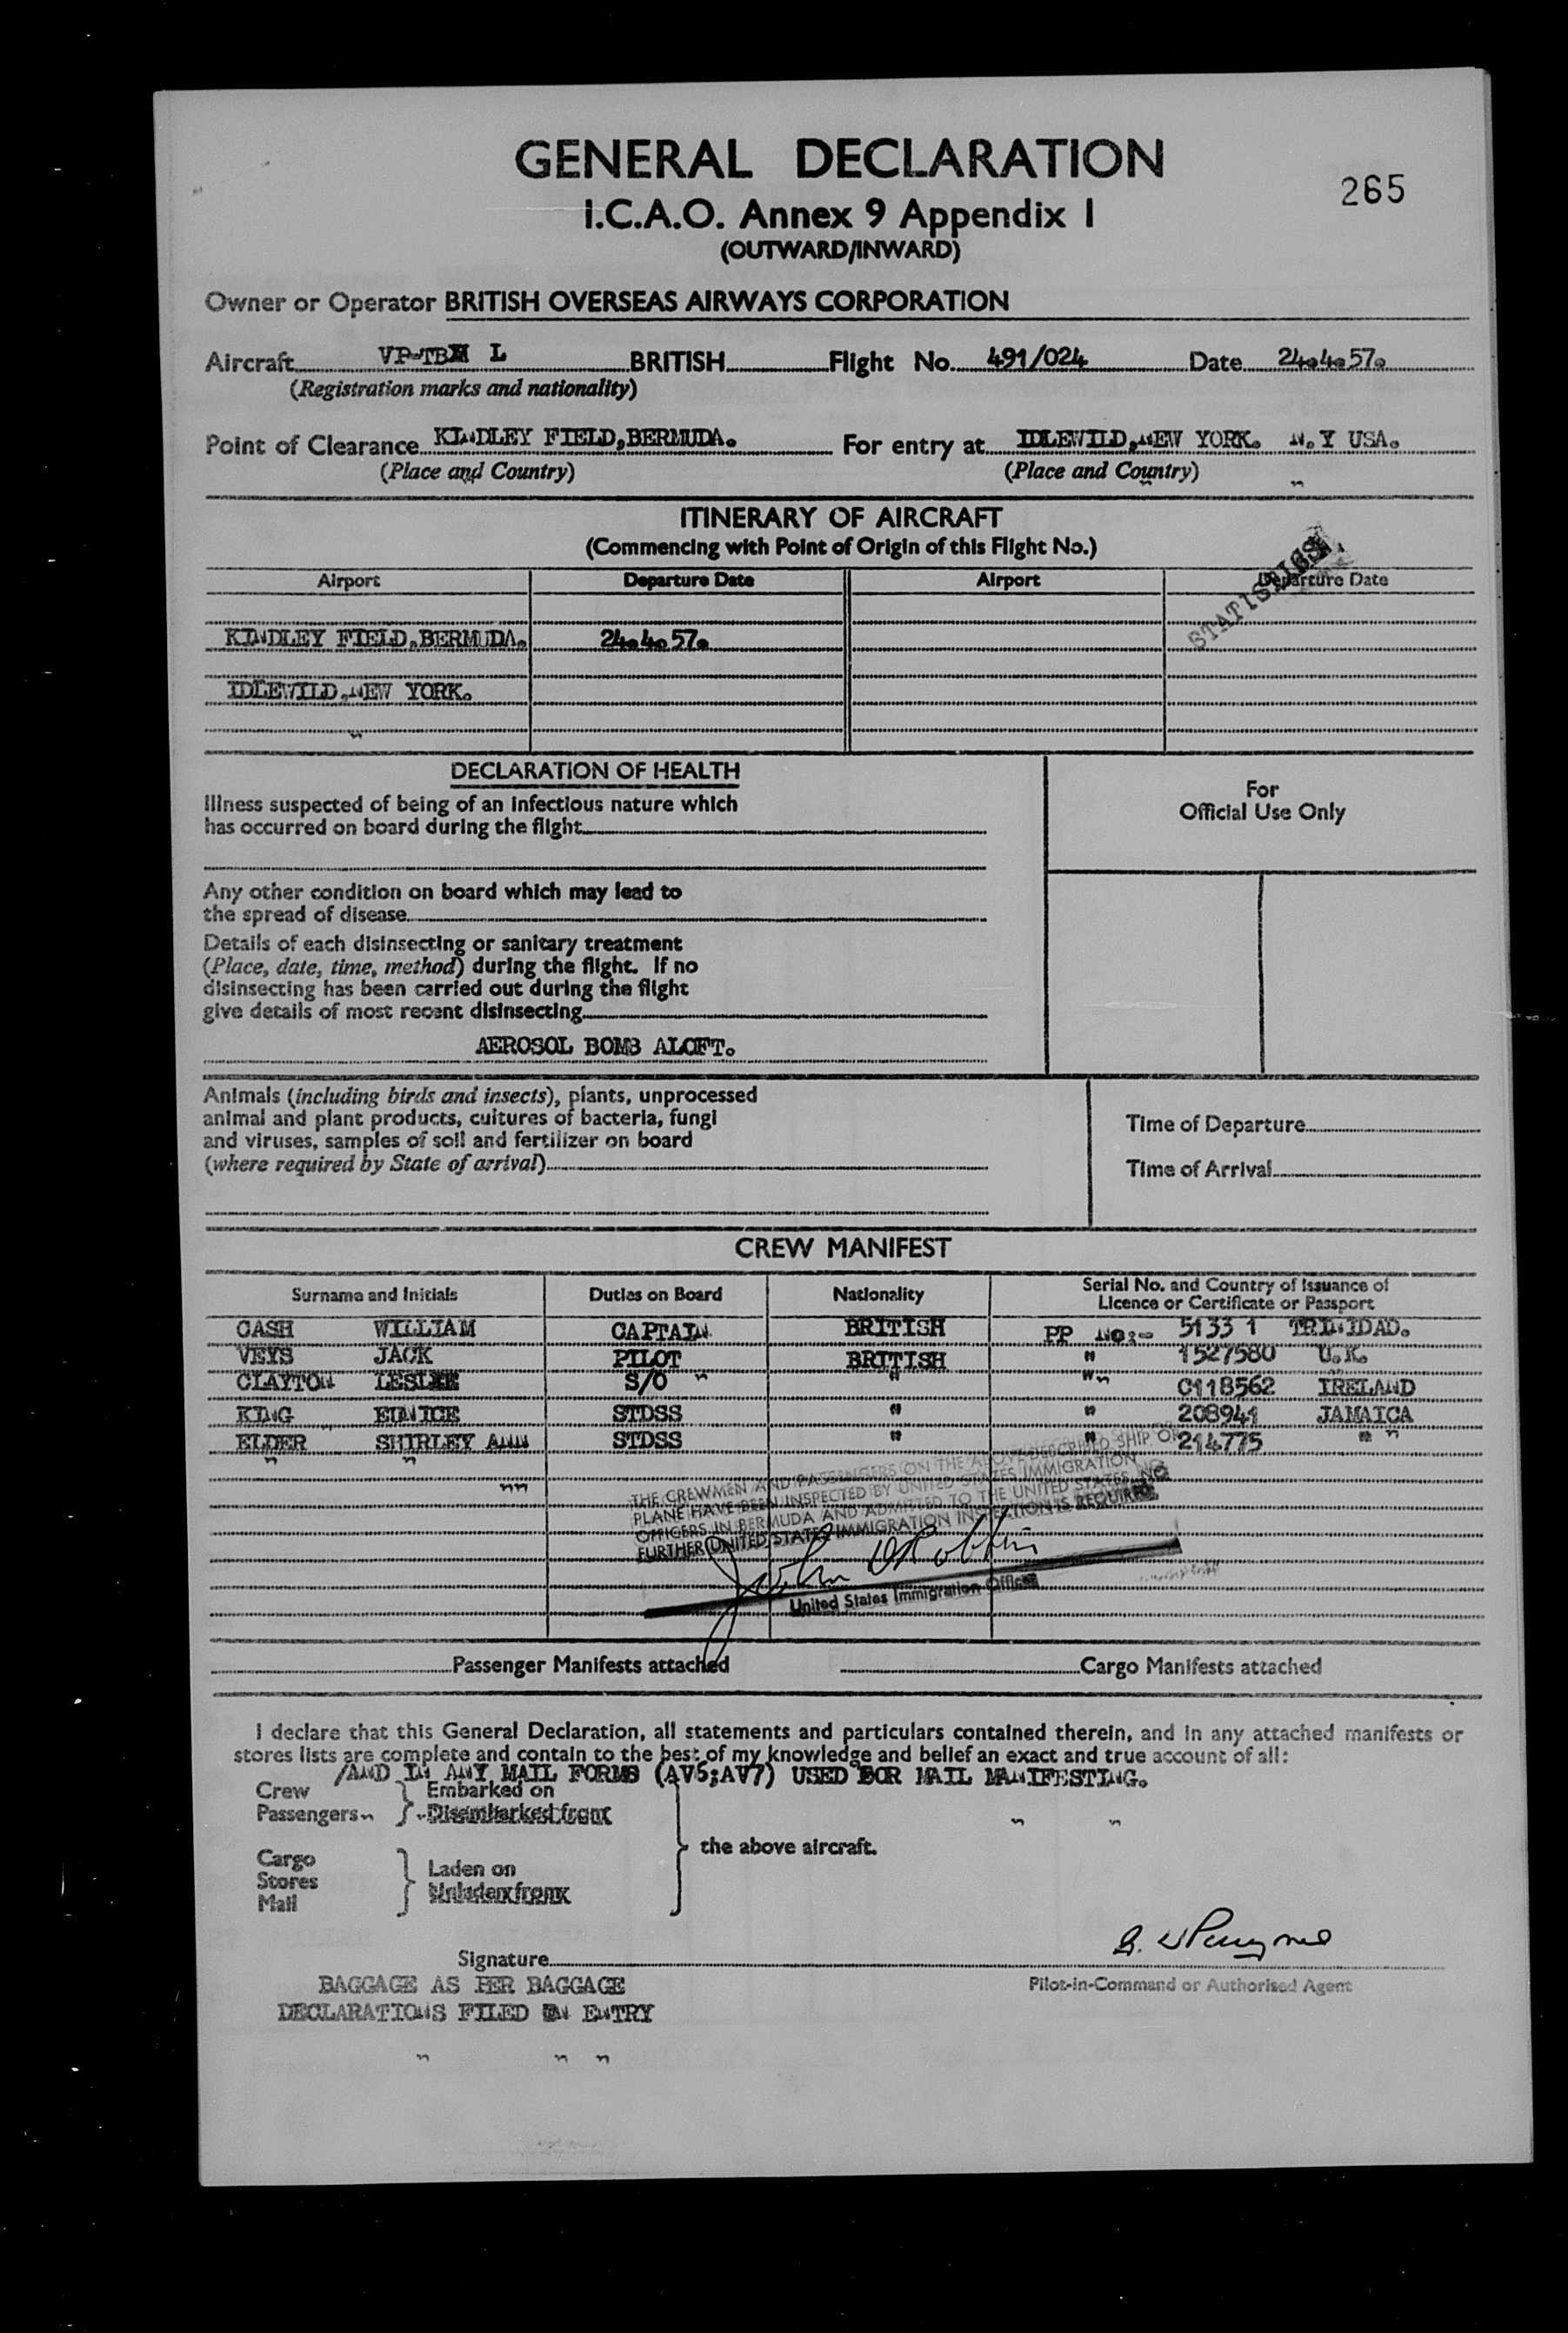 GENERAL DECLARATION
265
I.C.A.O. Annex 9 Appendix I
(OUTWARD/INWARD)
Owner or Operator BRITISH OVERSEAS AIRWAYS CORPORATION
Aircraft VP-TB L BRITISH Flight No. 491/024 Date 24.4.57.
(Registration marks and nationality)
Point of Clearance KINDLEY FIELD,BERMUDA. For entry at IDLEWILD,NEW YORK. N.Y USA.
(Place and Country) (Place and Country)
ITINERARY OF AIRCRAFT
(Commencing with Point of Origin of this Flight No.)
Airport Departure Date Airport Departure Date
KINDLEY FIELD,BERMUDA. 24.4.57.
IDLEWILD,NEW YORK.
DECLARATION OF HEALTH
For
Official Use Only
Illness suspected of being of an infectious nature which
has occurred on board during the flight
Any other condition on board which may lead to
the spread of disease
Details of each disinsecting or sanitary treatment
(Place, date, time, method) during the flight. If no
disinsecting has been carried out during the flight
give details of most recent disinsecting
AEROSOL BOMB ALOFT.
Animals (including birds and insects), plants, unprocessed
animal and plant products, cultures of bacteria, fungi
and viruses, samples of soil and fertilizer on board
(where required by State of arrival)
Time of Departure
Time of Arrival
CREW MANIFEST
Surname and Initials Duties on Board Nationality Serial No. and Country of Issuance of
Licence or Certificate or Passport
CASH WILLIAM CAPTAIN BRITISH PP NO:- 5133 1 TRINIDAD.
VEYS JACK PILOT BRITISH " 1527580 U.K.
CLAYTON LESLIE S/O " " C118562 IRELAND
KING EUNICE STDSS " " 208941 JAMAICA
ELDER SHIRLEY ANN STDSS " " 214775 "
THE CREWMEN AND PASSENGERS ON THE ABOVE DESCRIBED SHIP OR
PLANE HAVE BEEN INSPECTED BY UNITED STATES IMMIGRATION
OFFICERS IN BERMUDA AND ADMITTED TO THE UNITED STATES. NO
FURTHER UNITED STATES IMMIGRATION INSPECTION IS REQUIRED.
United States Immigration Officer
Passenger Manifests attached Cargo Manifests attached
I declare that this General Declaration, all statements and particulars contained therein, and in any attached manifests or
stores lists are complete and contain to the best of my knowledge and belief an exact and true account of all:
/AND IN ANY MAIL FORMS (AV5;AV7) USED FOR MAIL MANIFESTING.
Crew Embarked on
Passengers Disembarked from
the above aircraft.
Cargo
Laden on
Stores
Unladen from
Mail
Signature
Pilot-in-Command or Authorised Agent
BAGGAGE AS PER BAGGAGE
DECLARATIONS FILED ON ENTRY